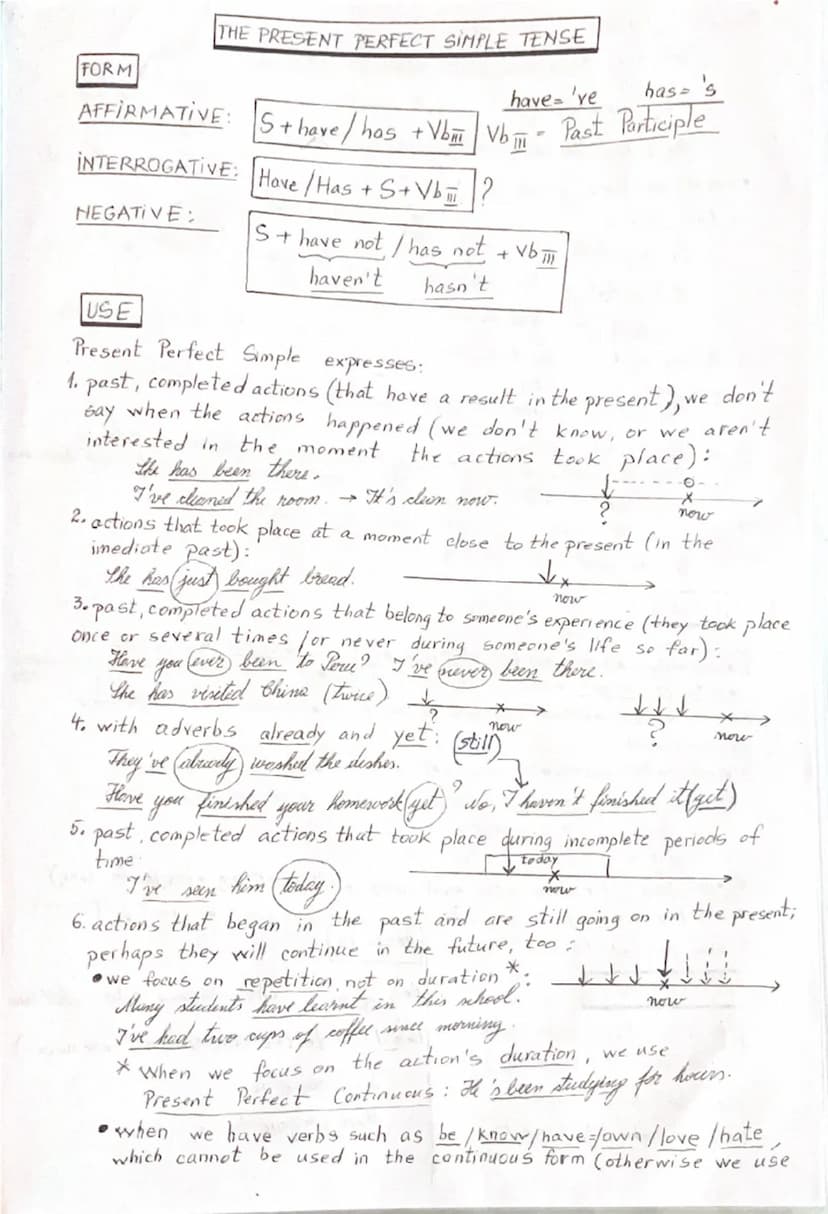 THE PRESENT PERFECT SIMPLE TENSE
FORM
have = 've has = 's
AFFIRMATIVE: S + have / has + Vb III Vb III = Past Participle
INTERROGATIVE: Have / Has + S + Vb III ?
NEGATIVE: S + have not / has not + Vb III
haven't hasn't
USE
Present Perfect Simple expresses:
1. past, completed actions (that have a result in the present), we don't
say when the actions happened (we don't know, or we aren't
interested in the moment the actions took place):
She has been there.
I've cleaned the room. → It's clean now.
? now
2. actions that took place at a moment close to the present (in the
imediate past):
She has just bought bread.
now
3. past, completed actions that belong to someone's experience (they took place
once or several times / or never during someone's life so far):
Have you ever been to Peru? I've never been there.
She has visited China (twice)
? now ? now
4. with adverbs already and yet: (still)
They've already washed the dishes.
Have you finished your homework yet? No, I haven't finished it (yet)
5. past, completed actions that took place during incomplete periods of
time:
today
I've seen him today.
now
6. actions that began in the past and are still going on in the present;
perhaps they will continue in the future, too:
• we focus on repetition, not on duration *:
now
Many students have learnt in this school.
I've had two cups of coffee since morning.
* When we focus on the action's duration, we use
Present Perfect Continuous: He's been studying for hours.
• when we have verbs such as be / know / have = own / love / hate,
which cannot be used in the continuous form (otherwise we use